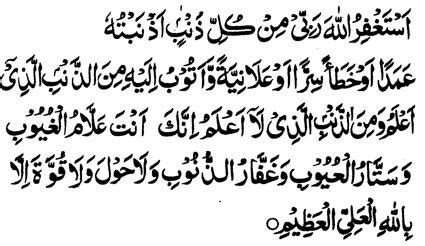 اَسْتَغْفِرُ اللهَ رَبِّىْ مِنْ كُلِّ ذَنْۢبٍ اَذْنَبْتُهٗ
عَمَدًا اَوْ خَطَأً سِرًّا اَوْ عَلَانِيَةً وَّاَتُوْبُ اِلَيْهِ مِنَ الذَّنْۢبِ الَّذِىْ
اَعْلَمُ وَمِنَ الذَّنْۢبِ الَّذِىْ لَآ اَعْلَمُ اِنَّكَ اَنْتَ عَلَّامُ الْغُيُوْبِ
وَسَتَّارُ الْعُيُوْبِ وَغَفَّارُ الذُّنُوْبِ وَلَا حَوْلَ وَلَا قُوَّةَ اِلَّا
بِاللهِ الْعَلِىِّ الْعَظِيْمِ ○